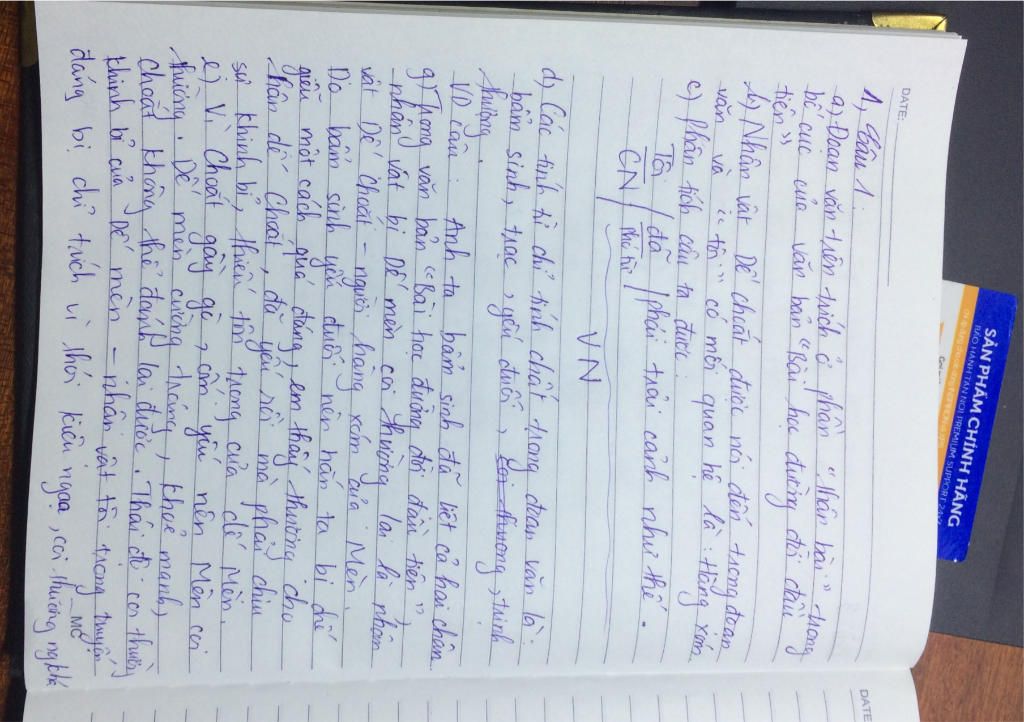 DATE:
1, Câu 1.
a) Đoạn văn trên trích ở phần "thân bài" trong
bố cục của văn bản "Bài học đường đời đầu
tiên"
b) Nhân vật Dế choắt được nói đến trong đoạn
văn và "tôi" có mối quan hệ là: Hàng xóm.
c) Phân tích câu ta được:
Tôi / đã / phải trải cảnh như thế.
CN / Phó từ /
VN
d) Các tính từ chỉ tính chất trong đoạn văn là:
bẩm sinh, trạc, yếu đuối, coi thường, trịnh
thượng.
VD câu: Anh ta bẩm sinh đã liệt cả hai chân.
g) Trong văn bản "Bài học đường đời đầu tiên",
nhân vật bị Dế mèn coi thường lại là nhân
vật Dế Choắt - người hàng xóm của Mèn.
Do bẩm sinh yếu đuối nên hắn ta bị chế
giễu một cách quá đáng, em thấy thương cho
thân dế Choắt, đã yếu rồi mà phải chịu
sự khinh bỉ, thiếu tôn trọng của dế Mèn.
e) Vì Choắt gầy gò, ốm yếu nên Mèn coi
thường. Dế mèn cường tráng, khoẻ mạnh,
Choắt không thể đánh lại được. Thái độ coi thường
khinh bỉ của Dế mèn - nhân vật tôi trong truyện
đáng bị chỉ trích vì thói kiêu ngạo, coi thường
SẢN PHẨM CHÍNH HÃNG
BẢO HÀNH TẬN NƠI PREMIUM SUPPORT 24/7
DATE: